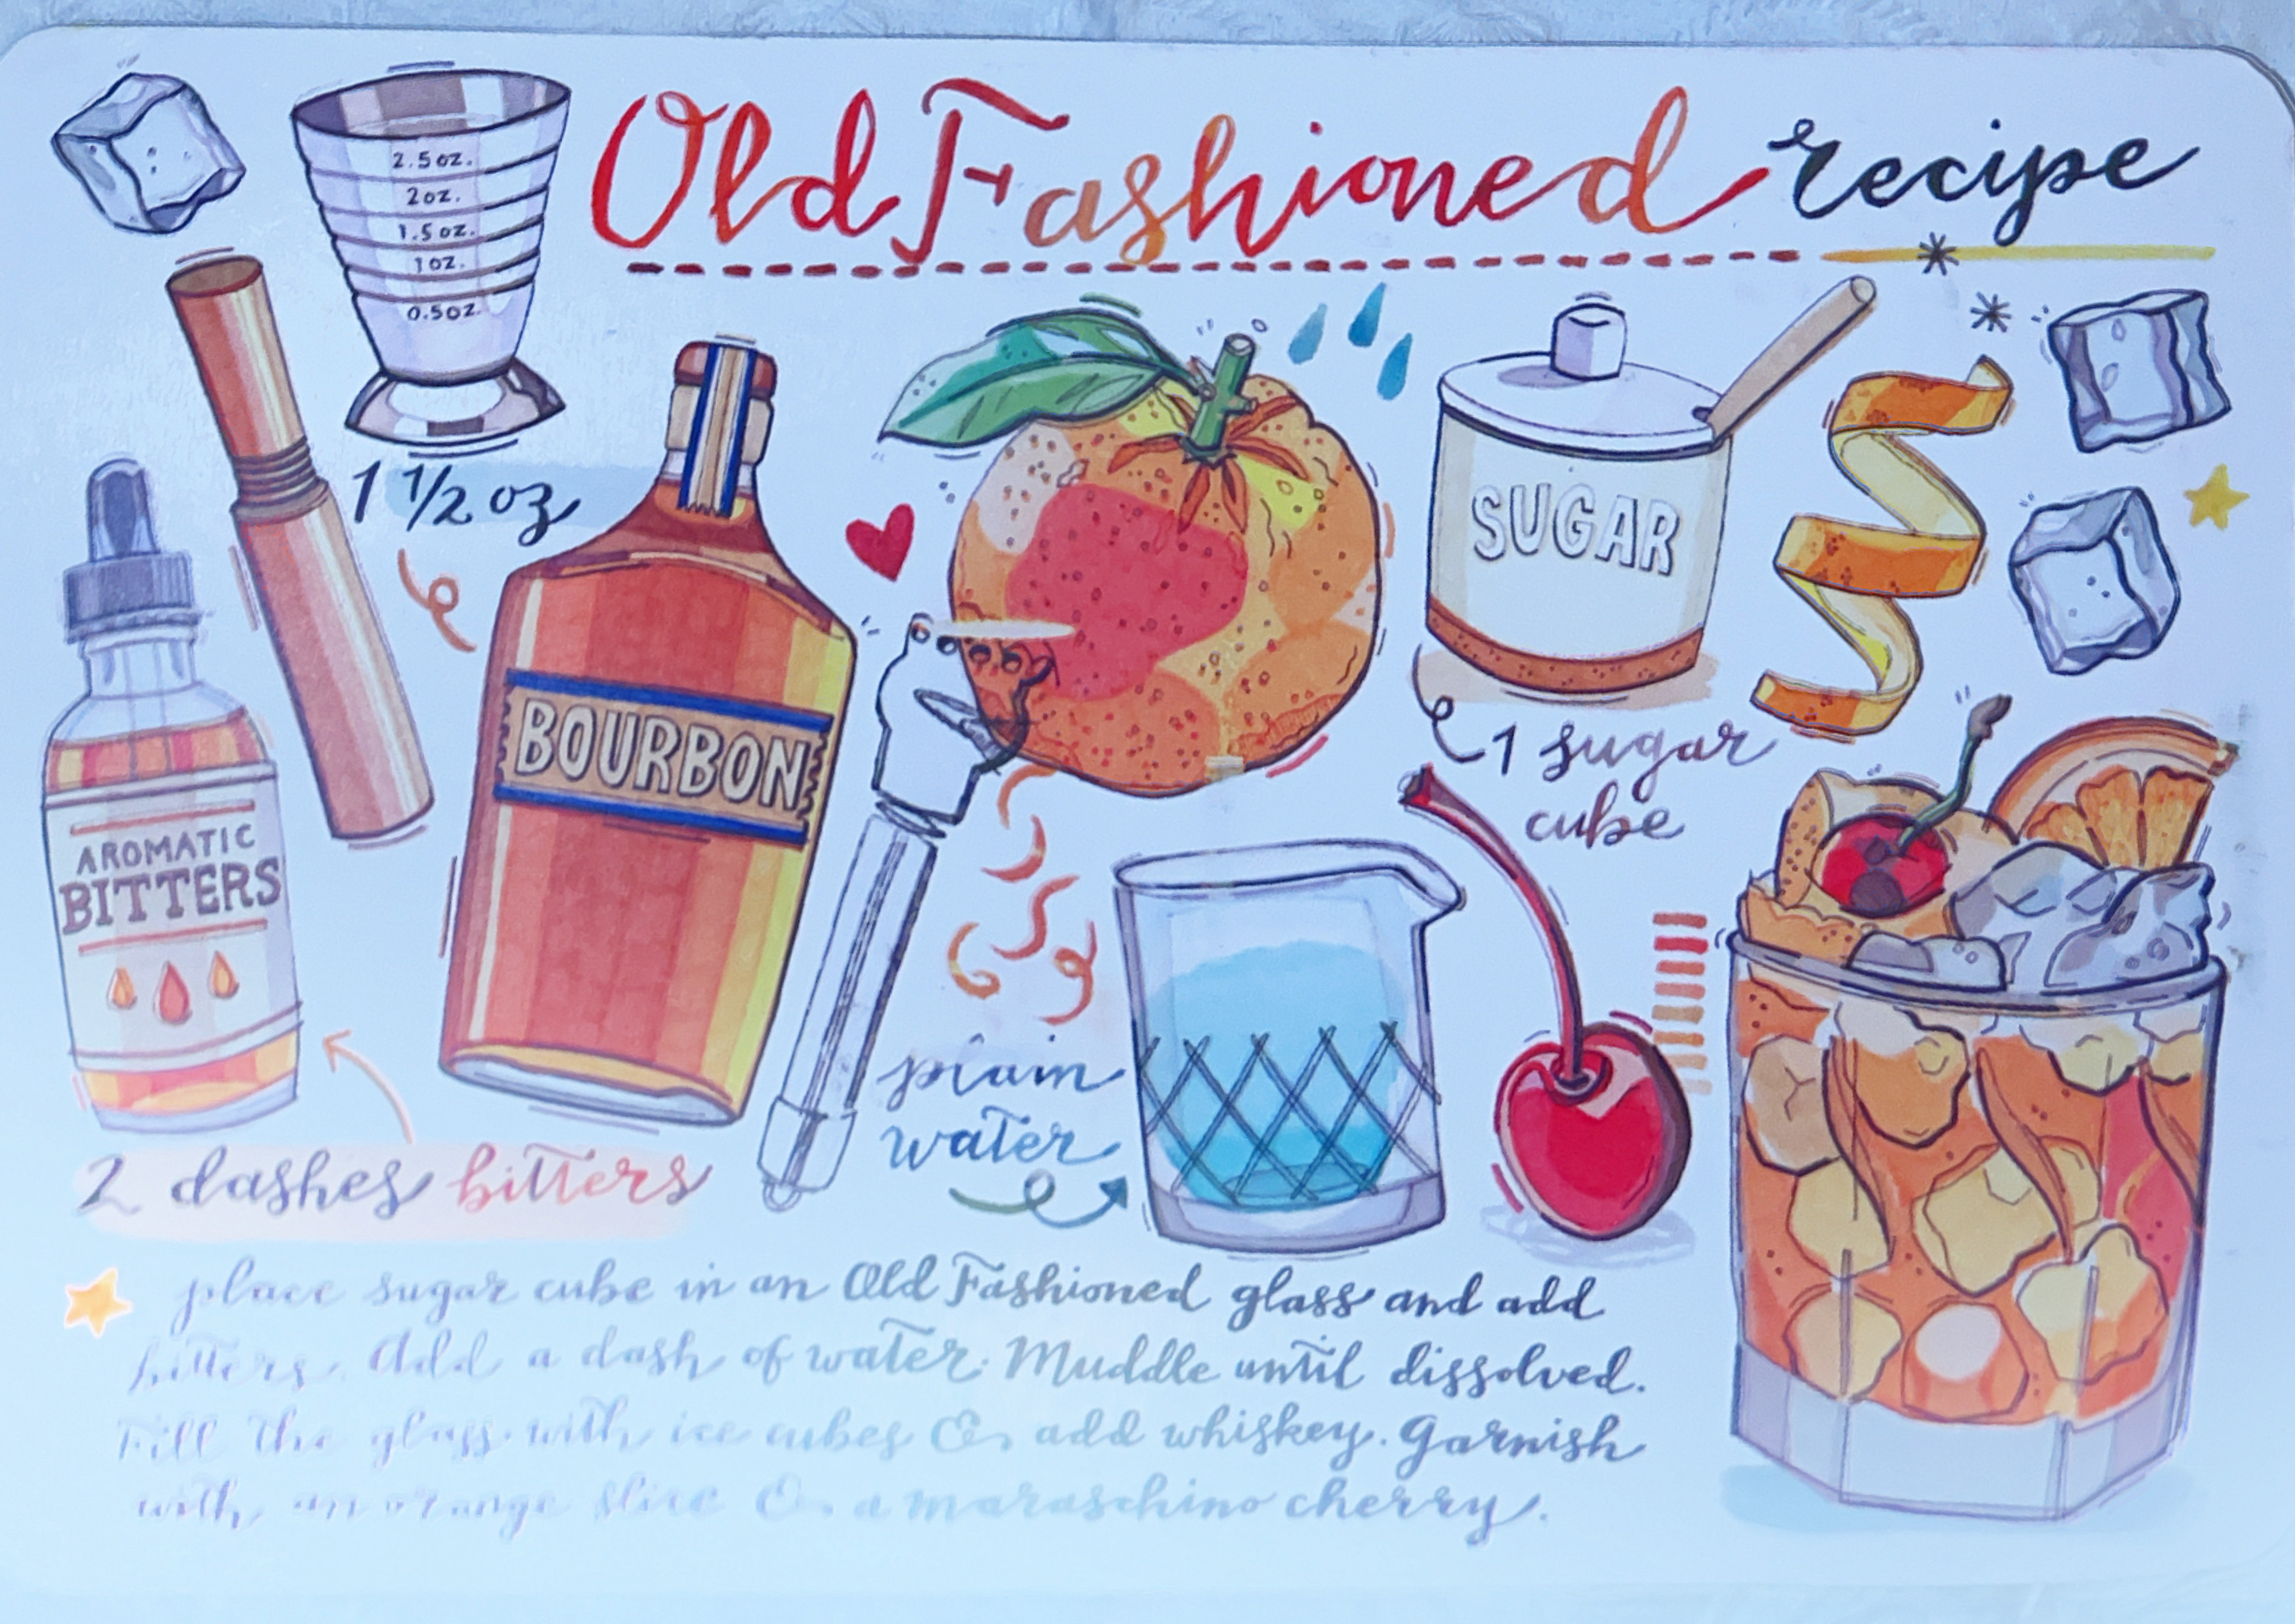 Old Fashioned recipe
2.5 oz.
2 oz.
1.5 oz.
1 oz.
0.5 oz.
1 1/2 oz
BOURBON
SUGAR
1 sugar
cube
AROMATIC
BITTERS
plain
water
2 dashes bitters
place sugar cube in an Old Fashioned glass and add
bitters. Add a dash of water. Muddle until dissolved.
Fill the glass with ice cubes & add whiskey. Garnish
with an orange slice & a maraschino cherry.